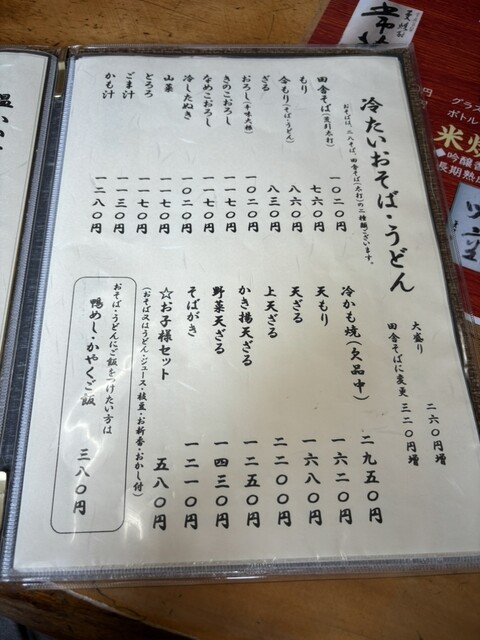 冷たいおそば・うどん
おそばは、二八そば、田舎そば(太打)の二種類ございます。
田舎そば(荒引太打) 一〇二〇円
もり 七六〇円
合もり(そば・うどん) 八六〇円
ざる 八三〇円
おろし(辛味大根) 一〇二〇円
きのこおろし 一一七〇円
なめこおろし 一一七〇円
冷したぬき 一〇二〇円
山菜 一一七〇円
とろろ 一一七〇円
ごま汁 一一三〇円
かも汁 一二八〇円
大盛り 二六〇円増
田舎そばに変更 三二〇円増
冷かも焼(欠品中) 二九五〇円
天もり 一六二〇円
天ざる 一六八〇円
上天ざる 二二〇〇円
かき揚天ざる 一二五〇円
野菜天ざる 一四三〇円
そばがき 一二一〇円
☆お子様セット 五八〇円
(おそば又はうどん・ジュース・枝豆・お新香・おかし付)
おそば・うどんにご飯を付けたい方は
鴨めし・かやくご飯 三八〇円
グラス
ボトル
米焼
◆吟醸香
長期熟成